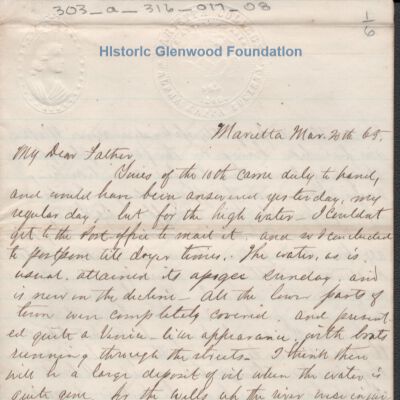 303_a_316_017_08
1/6
Historic Glenwood Foundation
Marietta Mar. 20th 65.
My Dear Father,
Yours of the 10th came duly to hand,
and would have been answered yesterday, my
regular day, but for the high water – I couldn't
get to the Post office to mail it and so I concluded
to postpone till dryer times. The water, as is
usual, attained its apogee Sunday, and
is now on the decline – All the lower parts of
town were completely covered and present-
ed quite a Venice-like appearance, with boats
running through the streets. I think there
will be a large deposit of oil when the water is
quite gone, for the wells up the river were